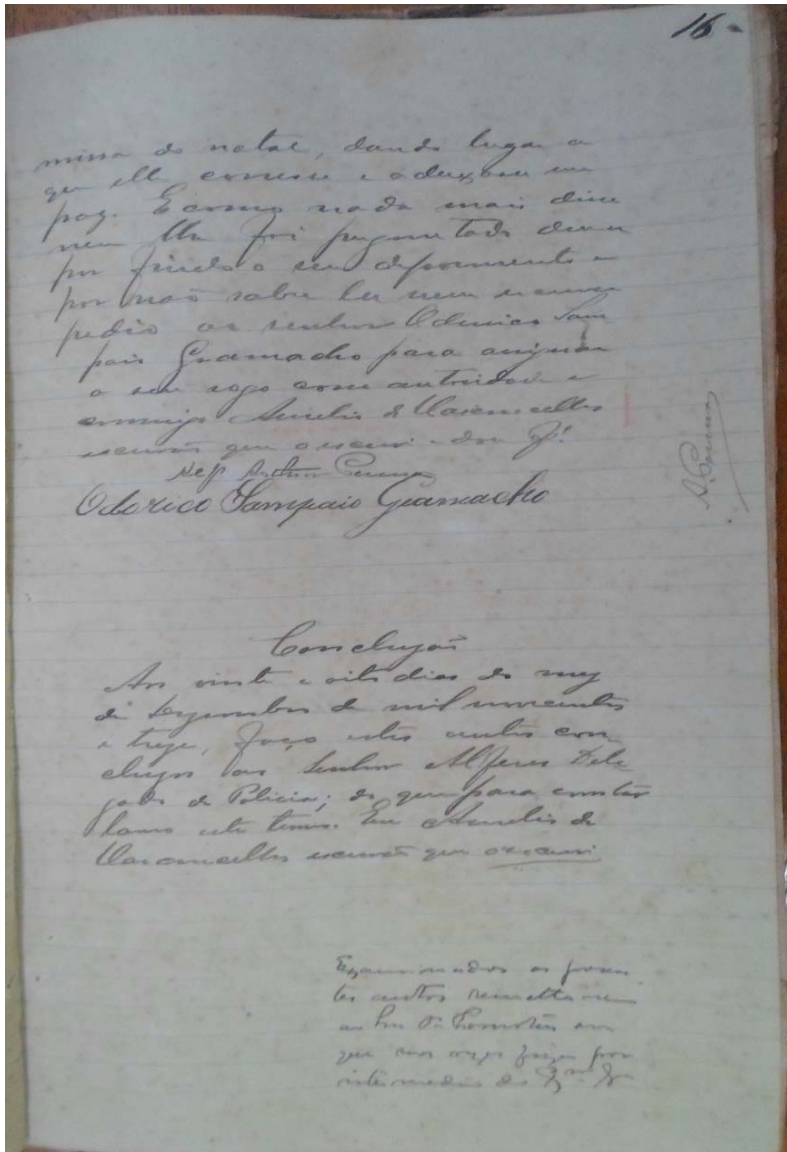 16-
missa do natal, dando lugar a
que elle corresse e a deixasse em
paz. E como nada mais disse
nem lhe foi perguntado deu-se
por findo o seu depoimento e
por não saber ler nem escrever
pedio ao senhor Odorico Sam
paio Gramacho para assignar
a seu rogo com autoridade e
commigo Aurelio de Vasconcellos
escrivão que o escrevi e dou fé.
Odorico Sampaio Gramacho
Conclusão
Aos vinte e oito dias do mez
de Dezembro de mil novecentos
e treze, faço estes autos con
clusos ao Senhor Alferes Dele
gado de Policia; do que para constar
lavro este termo. Eu Aurelio de
Vasconcellos escrivão que o escrevi.
Examinados os presen
tes autos remetta-se
ao
por
intermedio do